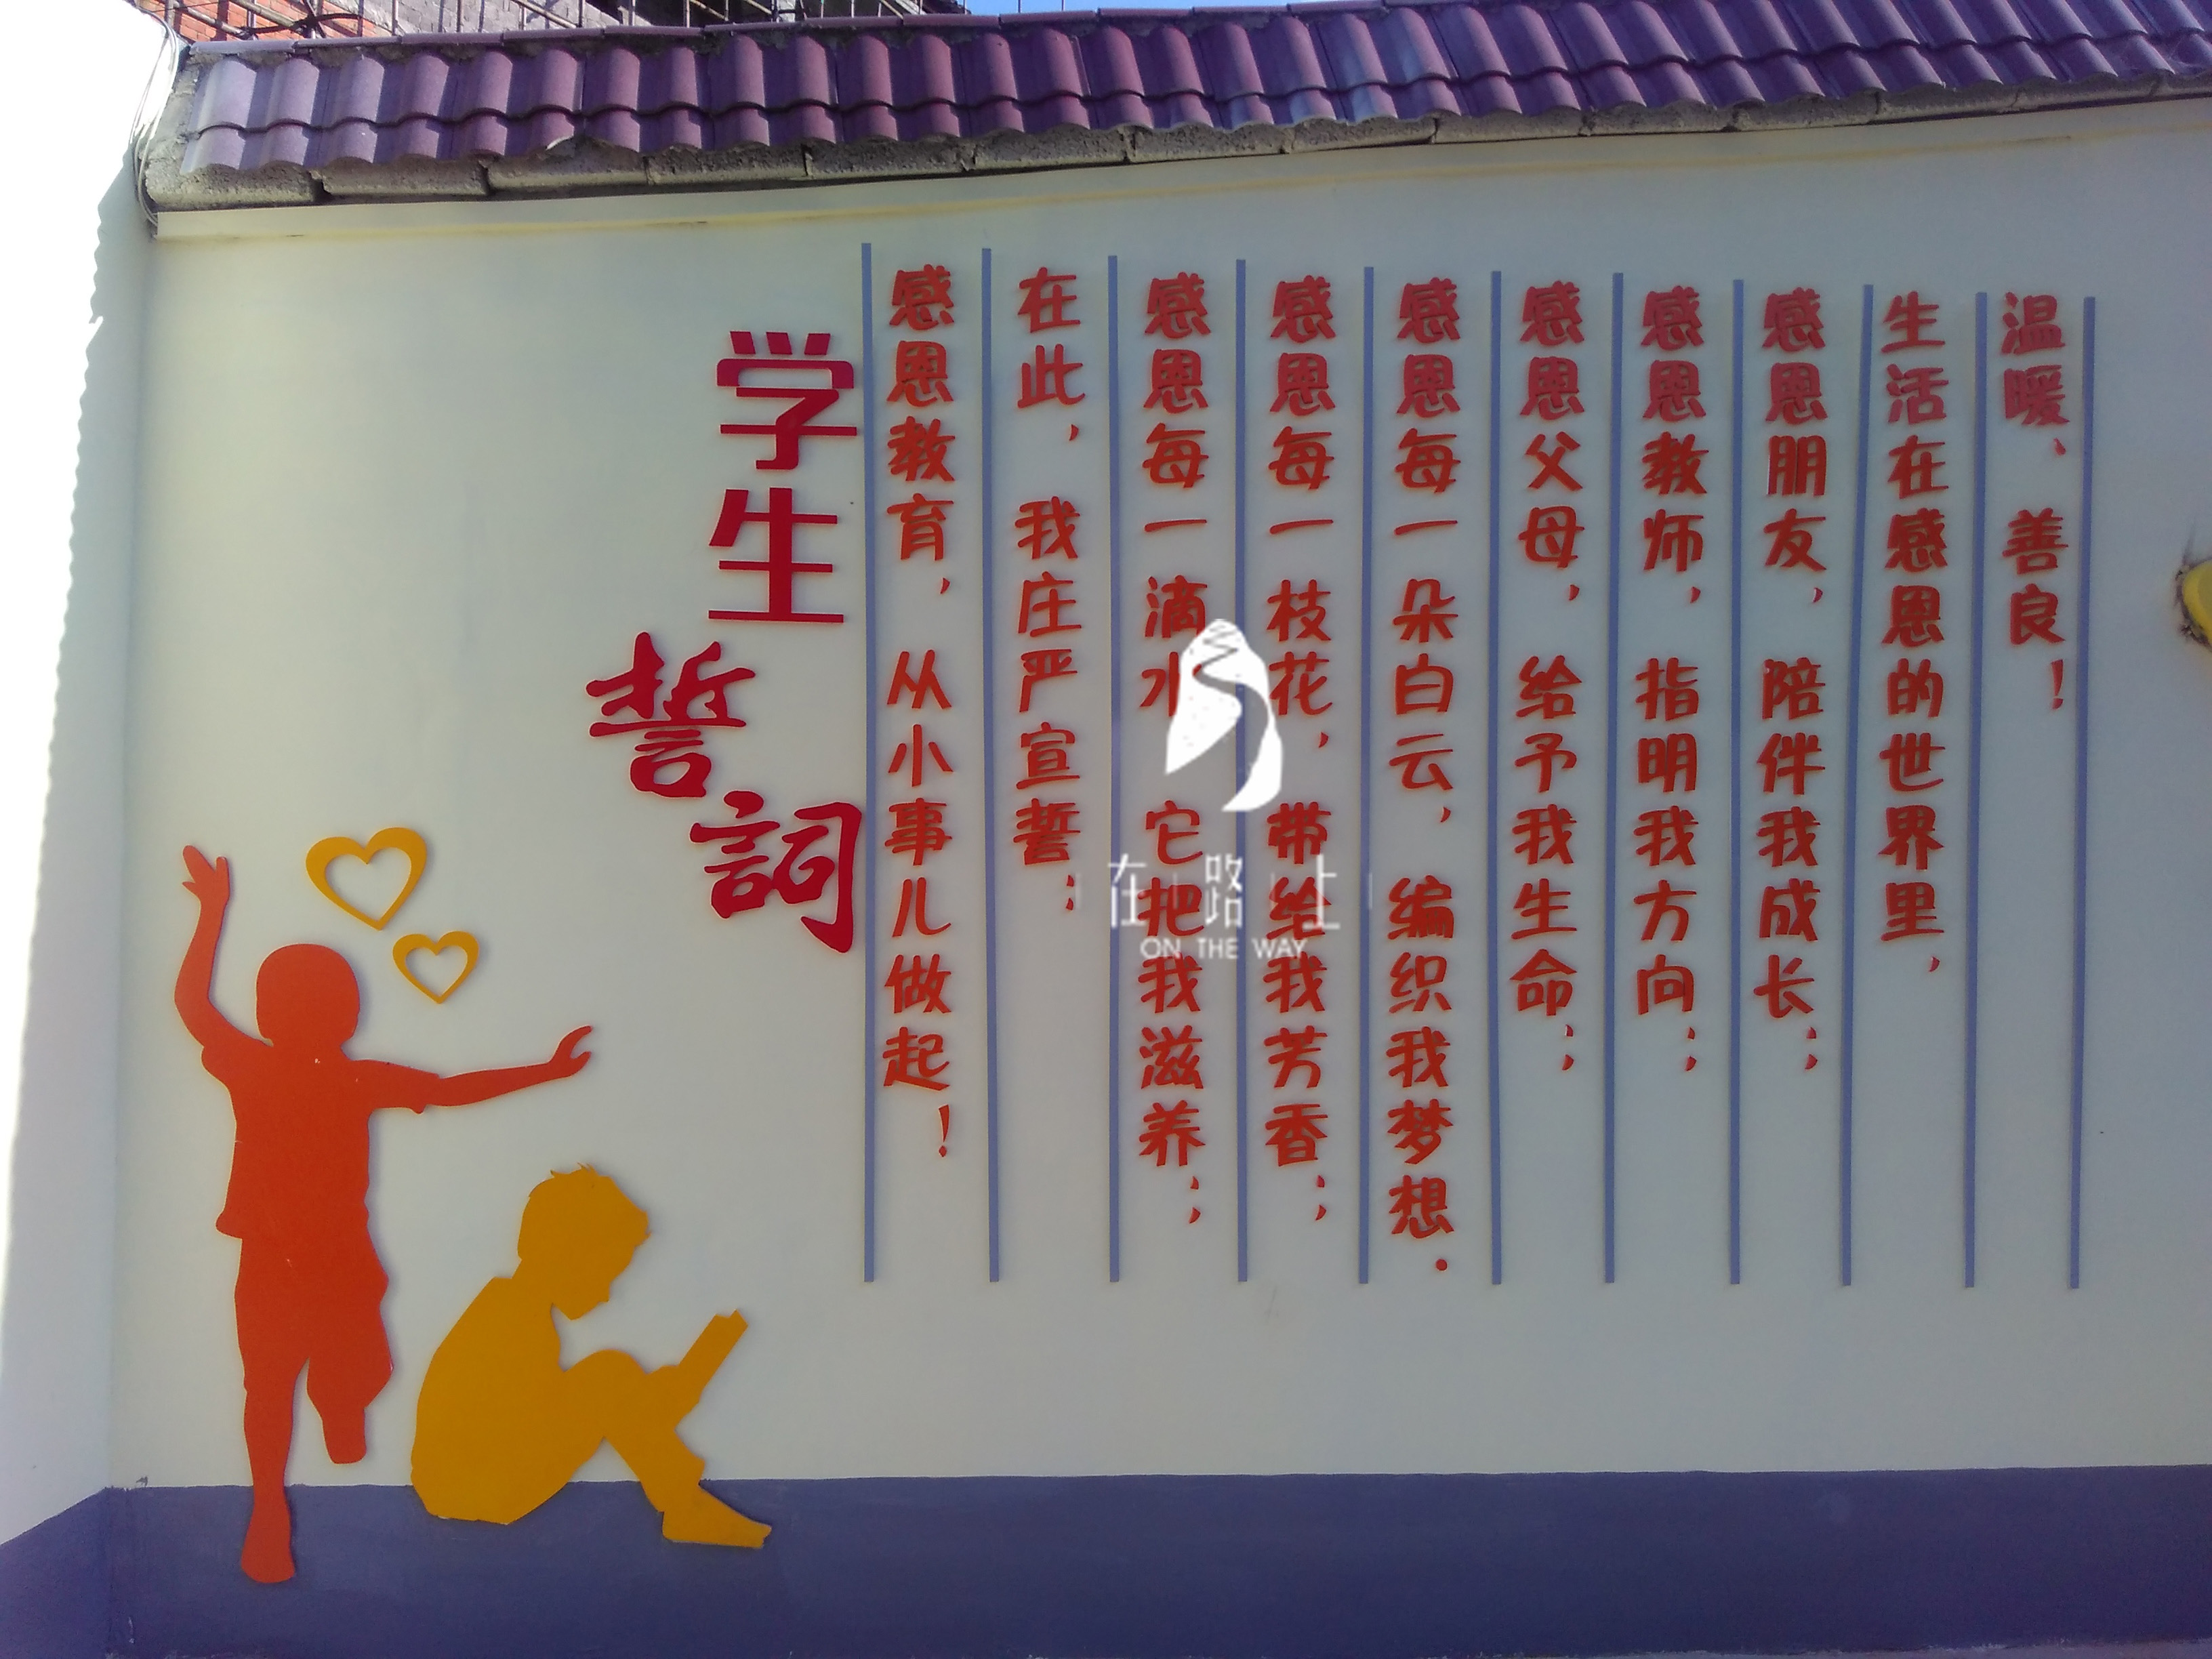 学生
誓詞
感恩教育，从小事儿做起！
在此，我庄严宣誓：
感恩每一滴水，它把我滋养；
感恩每一枝花，带给我芳香；
感恩每一朵白云，编织我梦想.
感恩父母，给予我生命；
感恩教师，指明我方向；
感恩朋友，陪伴我成长；
生活在感恩的世界里，
温暖、善良！
在路上
ON THE WAY